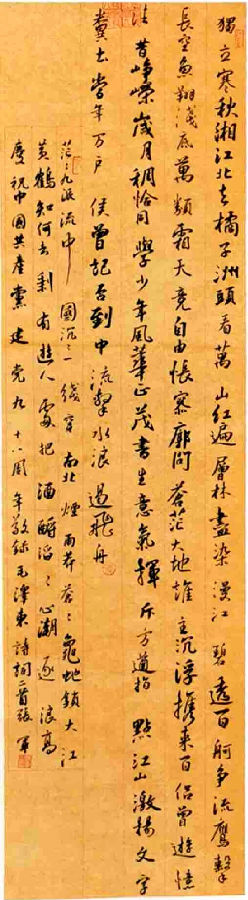 獨立寒秋湘江北去橘子洲頭看萬山紅遍層林盡染漫江碧透百舸争流鷹擊
長空魚翔淺底萬類霜天竞自由悵寥廓問蒼茫大地誰主沉浮攜来百侣曾遊憶
往昔崢嶸歲月稠恰同學少年風華正茂書生意氣揮斥方遒指點江山激揚文字
糞土當年万户侯曾記否到中流擊水浪遏飛舟
茫〻九派流中國沉〻一綫穿南北煙雨莽蒼〻龜蛇鎖大江
黄鶴知何去剩有遊人處把酒酹滔〻心潮逐浪高
慶祝中國共產黨建党九十八周年敬録毛澤東詩詞二首張軍